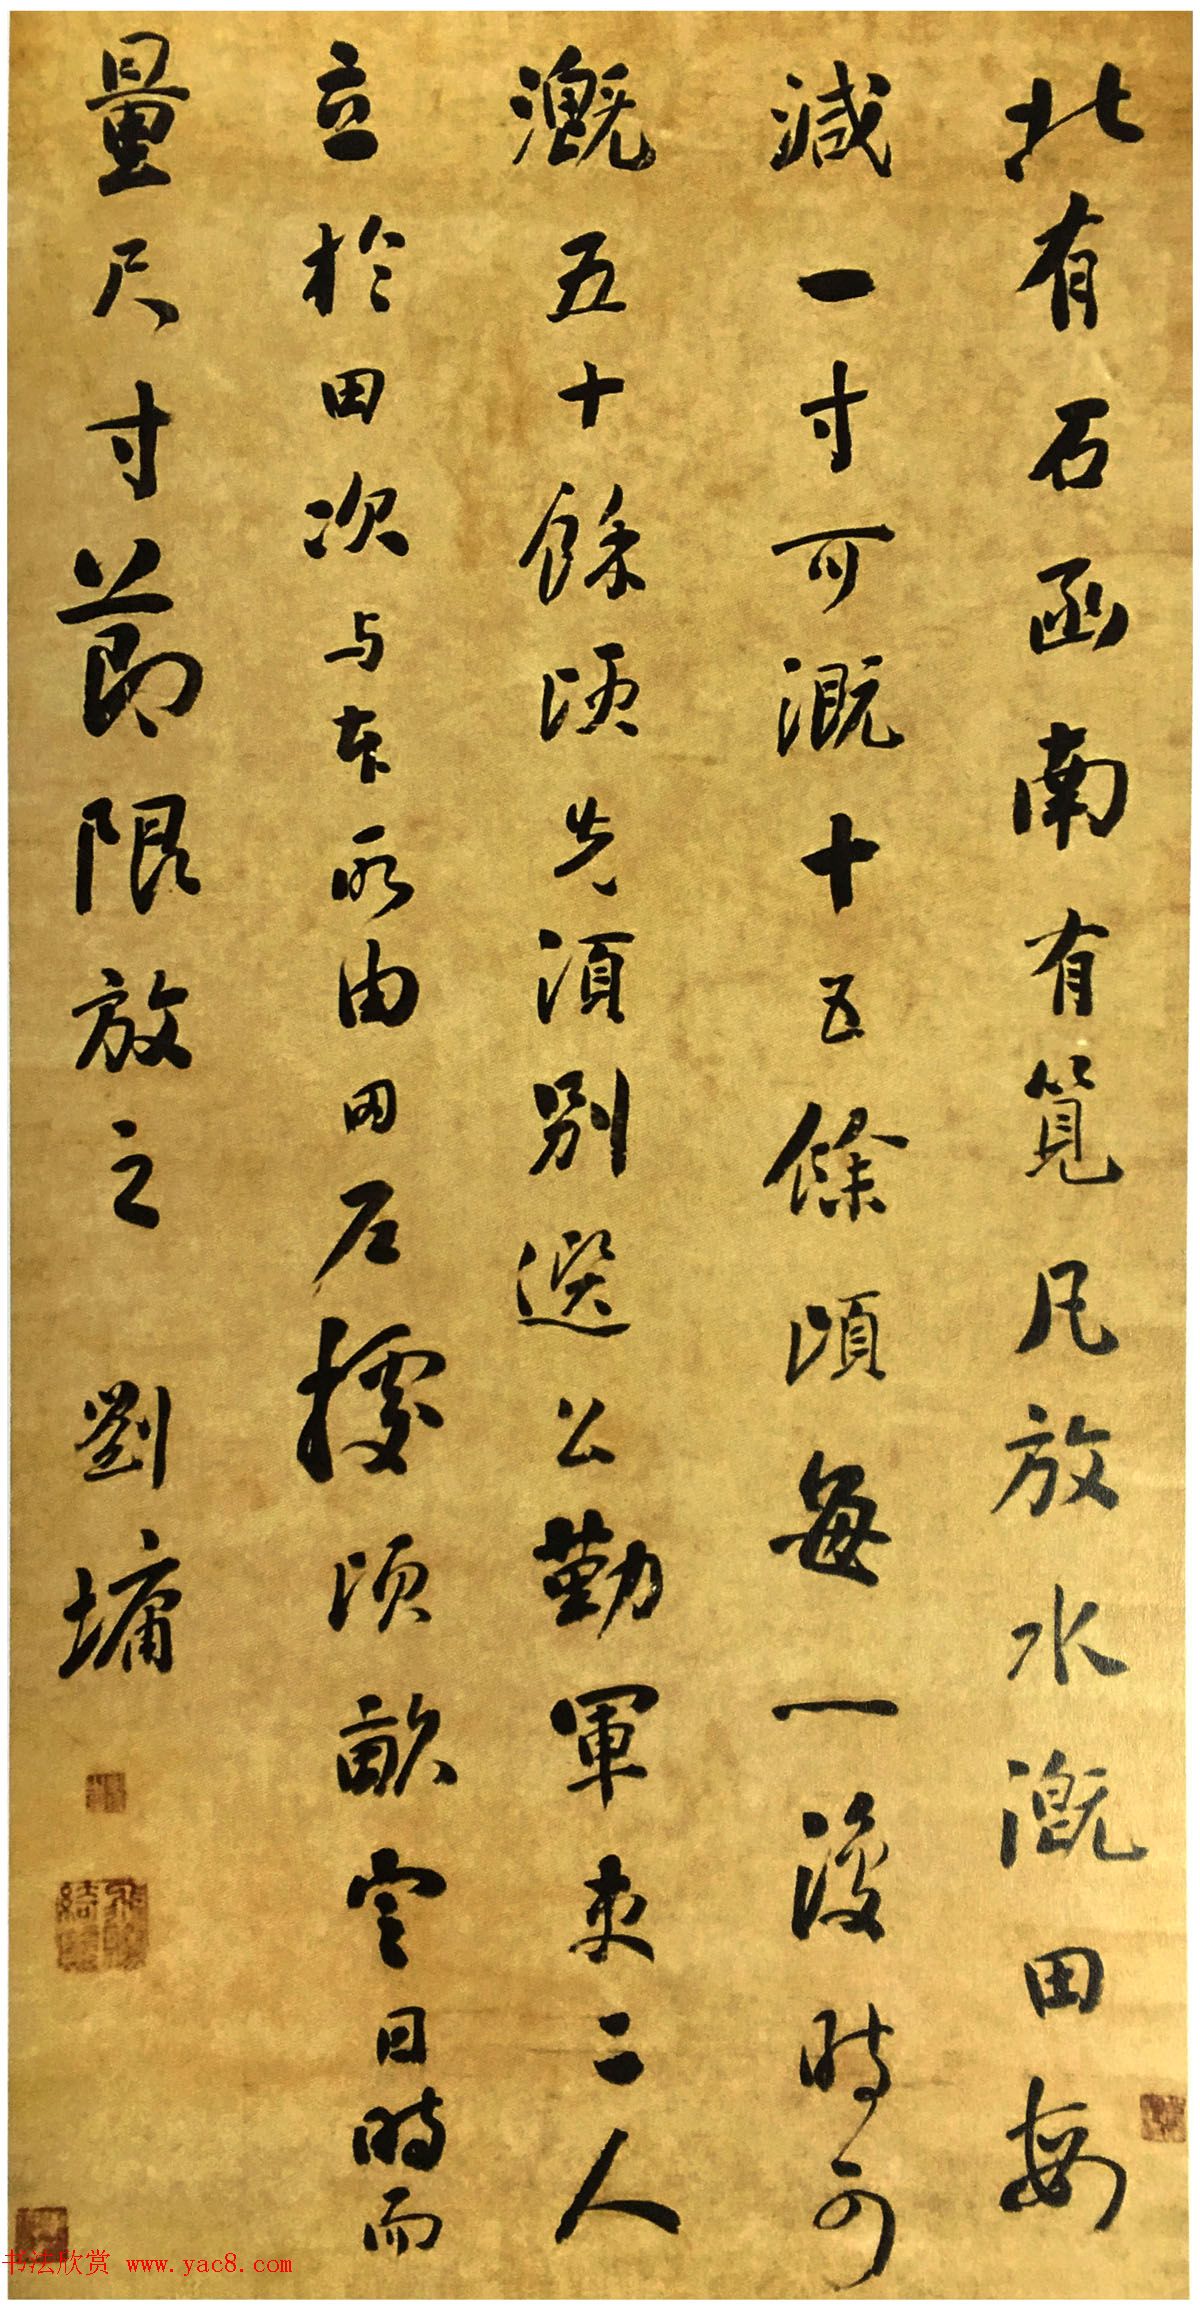 北有石函南有筧凡放水溉田每
減一寸可溉十五餘頃每一復時可
溉五十餘頃先須別選公勤軍吏二人
立於田次与本所由田戶據頃畝定日時而
量尺寸節限放之
劉墉
书法欣赏 www.yac8.com